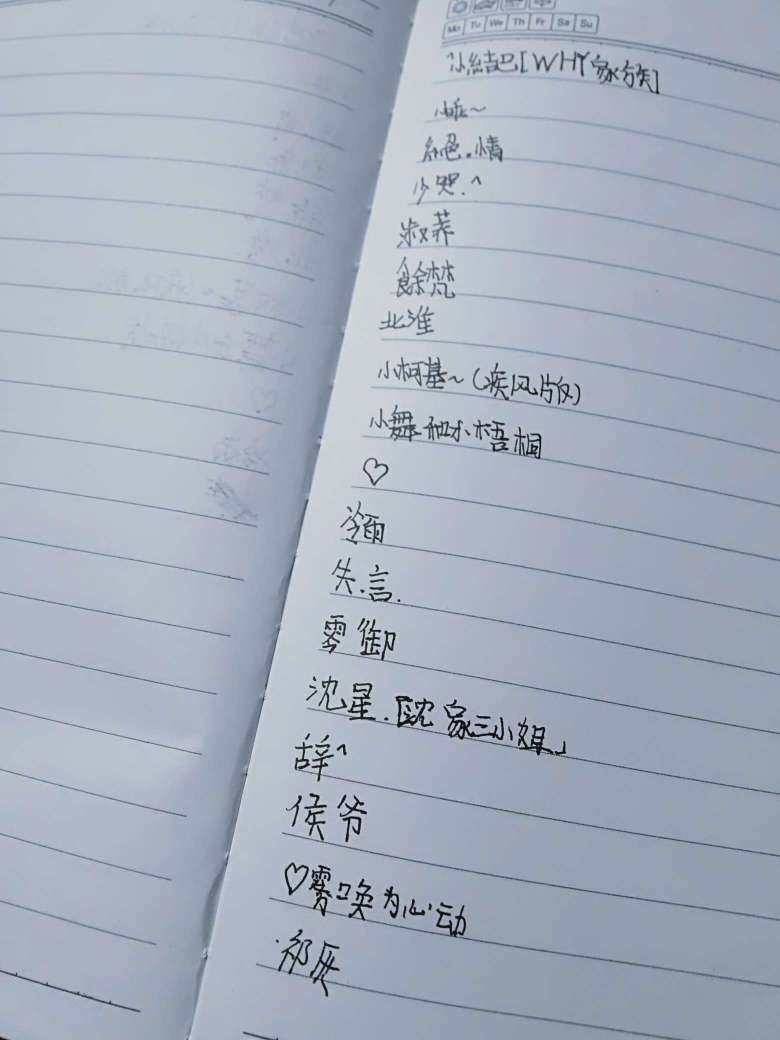 Mo Tu We Th Fr Sa Su
小結巴[WHY家族]
小～
絕.情
少哭.^
淑荞
餘梵
北淮
小柯基～(疾风版)
小舞和小梧桐
♡
冷雨
失.言.
雾御
沈星.「沈家三小姐」
辞^
侯爷
♡雾唤为心动
祁辰